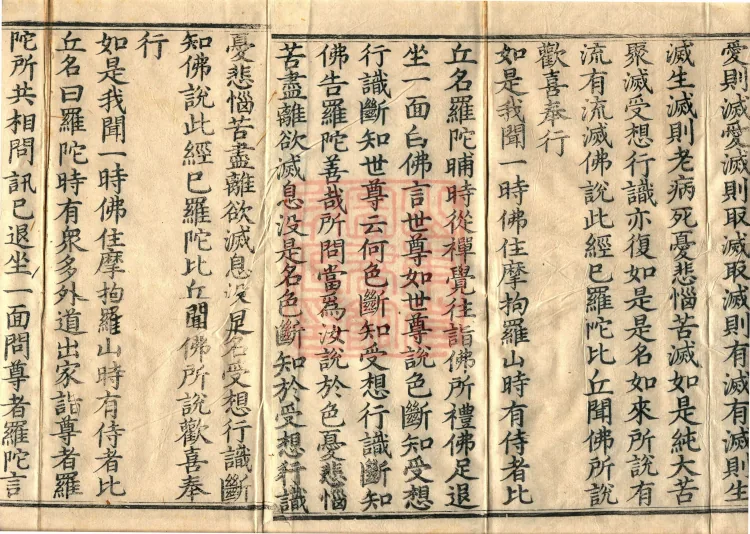 愛則滅愛滅則取滅取滅則有滅有滅則生
滅生滅則老病死憂悲惱苦滅如是純大苦
聚滅受想行識亦復如是是名如來所說有
流有流滅佛說此經已羅陀比丘聞佛所說
歡喜奉行
如是我聞一時佛住摩拘羅山時有侍者比
丘名羅陀晡時從禪覺往詣佛所禮佛足退
坐一面白佛言世尊如世尊說色斷知受想
行識斷知世尊云何色斷知受想行識斷知
佛告羅陀善哉所問當為汝說於色憂悲惱
苦盡離欲滅息没是名色斷知於受想行識
憂悲惱苦盡離欲滅息没是名受想行識斷
知佛說此經已羅陀比丘聞佛所說歡喜奉
行
如是我聞一時佛住摩拘羅山時有侍者比
丘名曰羅陀時有衆多外道出家詣尊者羅
陀所共相問訊已退坐一面問尊者羅陀言